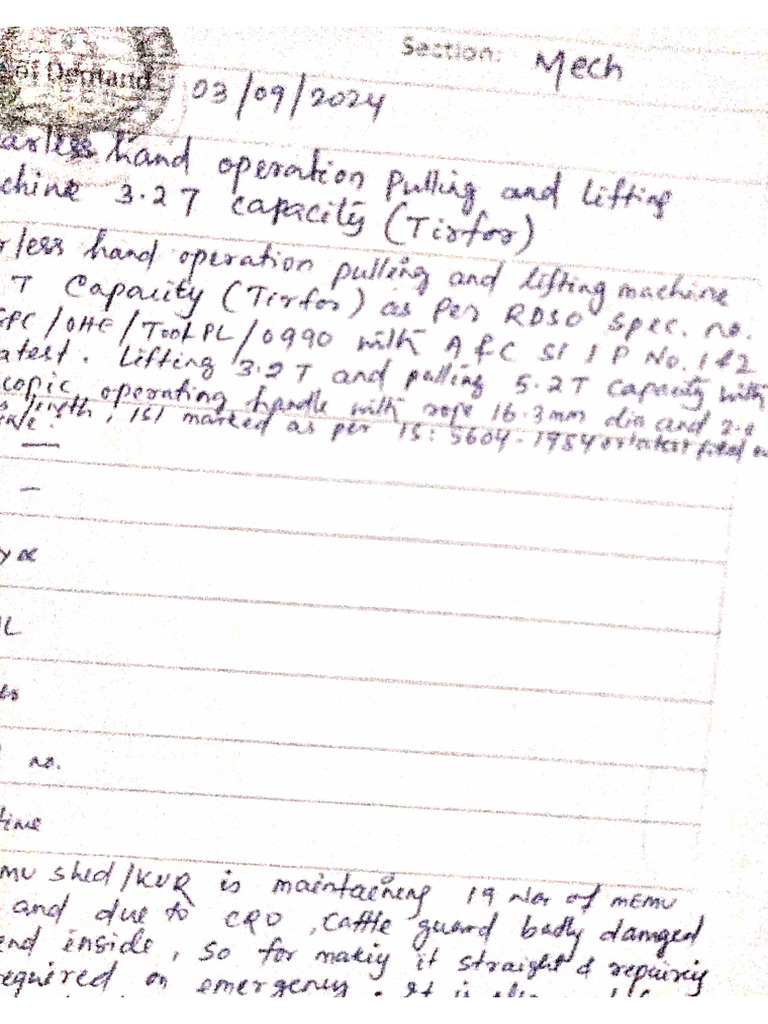 Section: Mech
of Demand
03/09/2024
hand operation Pulling and lifting
chine 3.2T capacity (Tirfor)
rless hand operation pulling and lifting machine
T Capacity (Tirfor) as Per RDSO Spec. no.
SPC/OHE/TOOLPL/0990 with A & C Sl I P No. 1 & 2
atest. Lifting 3.2T and pulling 5.2T Capacity with
copic operating handle with rope 16.3mm dia and 20
length, ISI marked as per IS: 5604-1984 or latest
—
–
no.
time
mu shed/KUR is maintaining 19 Nos of MEMU
and due to CRO, Cattle guard badly damaged
end inside, so for making it straight & repairing
required on emergency. It is